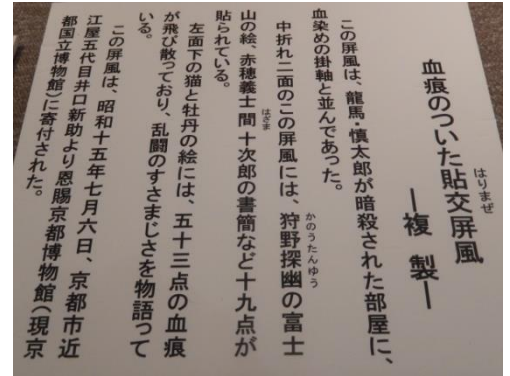 血痕のついた貼交屏風
はりまぜ
―複 製―
この屏風は、龍馬・慎太郎が暗殺された部屋に、
血染めの掛軸と並んであった。
中折れ二面のこの屏風には、狩野探幽の富士
かのうたんゆう
山の絵、赤穂義士間十次郎の書簡など十九点が
はざま
貼られている。
左面下の猫と牡丹の絵には、五十三点の血痕
が飛び散っており、乱闘のすさまじさを物語って
いる。
この屏風は、昭和十五年七月六日、京都市近
江屋五代目井口新助より恩賜京都博物館(現京
都国立博物館)に寄付された。